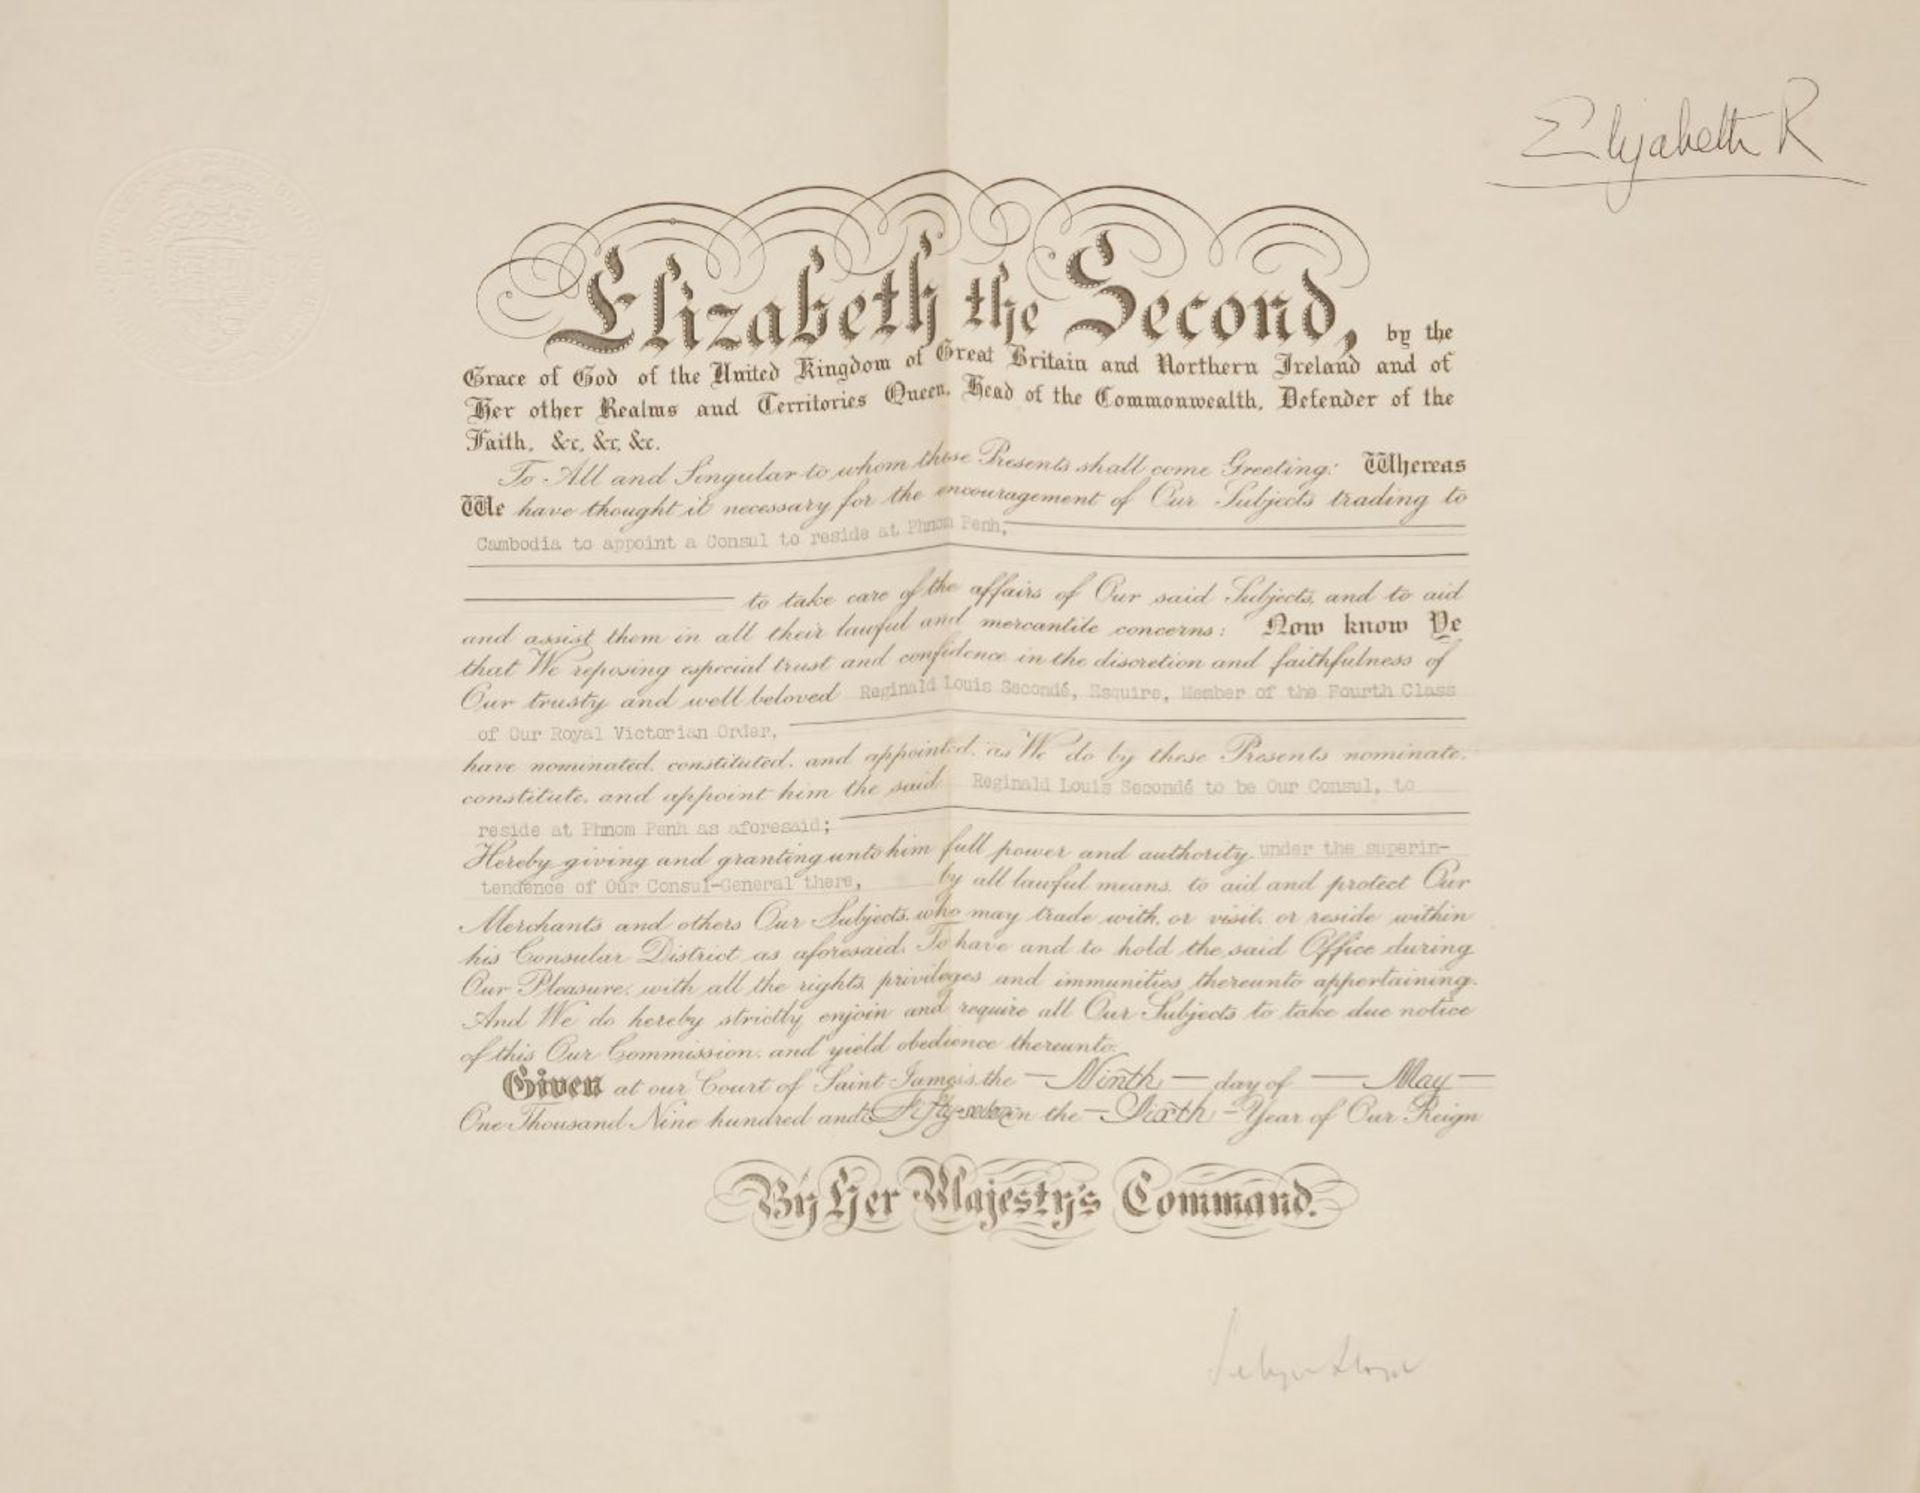 Elizabeth R
Elizabeth the Second, by the
Grace of God of the United Kingdom of Great Britain and Northern Ireland and of
Her other Realms and Territories Queen, Head of the Commonwealth, Defender of the
Faith, &c, &c, &c.
To All and Singular to whom these Presents shall come Greeting: Whereas
We have thought it necessary for the encouragement of Our Subjects trading to
Cambodia to appoint a Consul to reside at Phnom Penh,
to take care of the affairs of Our said Subjects, and to aid
and assist them in all their lawful and mercantile concerns: Now know Ye
that We reposing especial trust and confidence in the discretion and faithfulness of
Our trusty and well beloved Reginald Louis Secondé, Esquire, Member of the Fourth Class
of Our Royal Victorian Order,
have nominated, constituted, and appointed, as We do by these Presents nominate,
constitute, and appoint him the said Reginald Louis Secondé to be Our Consul, to
reside at Phnom Penh as aforesaid;
Hereby giving and granting unto him full power and authority, under the superin-
tendence of Our Consul-General there, by all lawful means, to aid and protect Our
Merchants and others Our Subjects, who may trade with, or visit, or reside within
his Consular District as aforesaid. To have and to hold the said Office during
Our Pleasure, with all the rights, privileges and immunities thereunto appertaining.
And We do hereby strictly enjoin and require all Our Subjects to take due notice
of this Our Commission, and yield obedience thereunto.
Given at our Court of Saint James's, the Ninth day of May
One Thousand Nine hundred and Fifty-seven in the Sixth Year of Our Reign
By Her Majesty's Command.
Selwyn Lloyd